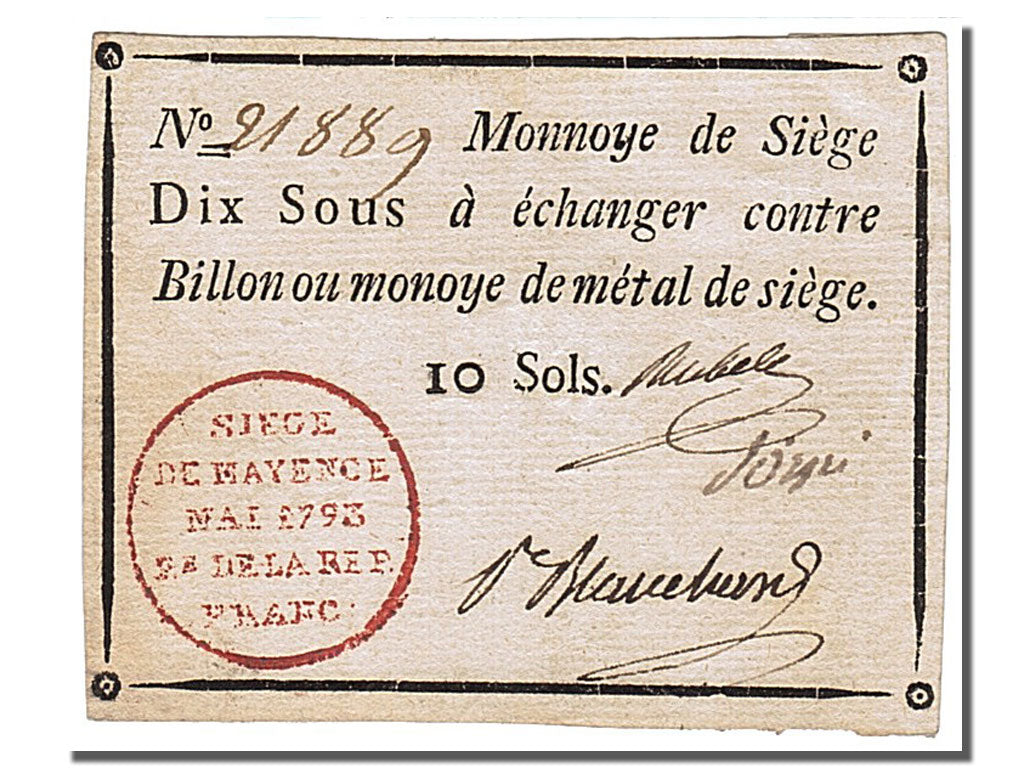 No 21889 Monnoye de Siège
Dix Sous à échanger contre
Billon ou monoye de métal de siège.
10 Sols.
Blanchard
SIEGE
DE MAYENCE
MAI 1793
2.E DE LA REP.
FRANC.